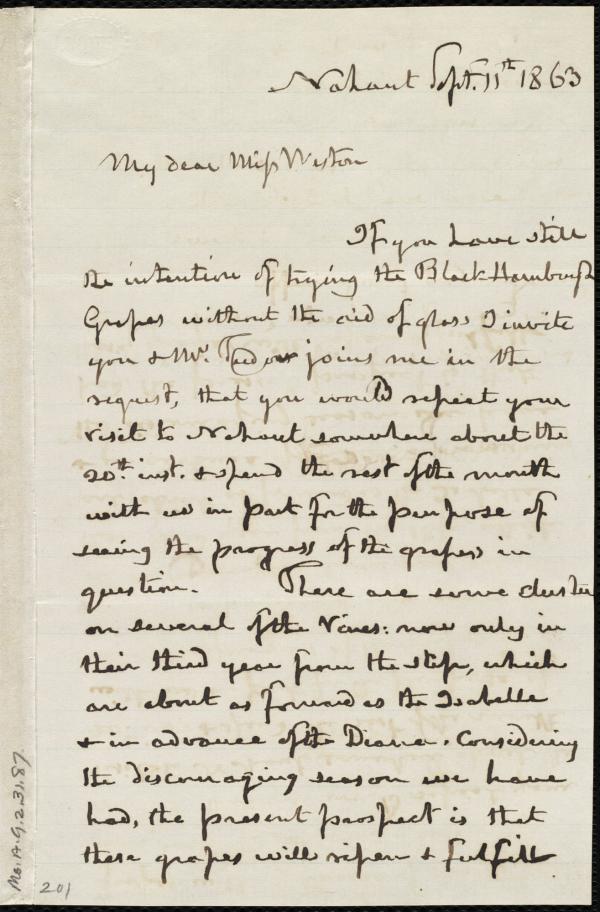 Nahant Sept. 11th 1863
My dear Miss Weston
If you have still
the intention of trying the Black Hambourgh
Grapes without the aid of glass I invite
you & Mr. Tudor joins me in the
request, that you would repeat your
visit to Nahant somewhere about the
20th inst. & spend the rest of the month
with us in part for the purpose of
seeing the progress of the grapes in
question. There are some cluster
on several of the Vines: now only in
their third year from the slip, which
are about as forward as the Isabella
& in advance of the Diana. Considering
the discouraging season we have
had, the present prospect is that
these grapes will ripen & fulfill
Ms.A.9.2.31.87
201